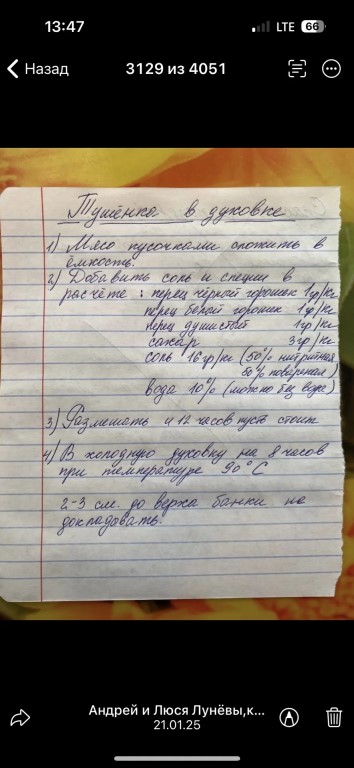 13:47
LTE 66
Назад
3129 из 4051
Тушёнка в духовке
1) Мясо кусочками сложить в
ёмкость.
2) Добавить соль и специи в
расчёте: перец чёрный горошек 1гр/кг
перец белый горошек 1гр/кг
перец душистый 1гр/кг
сахар 3гр/кг
соль 16гр/кг (50% нитритная
50% поваренная)
вода 10% (можно без воды)
3) Размешать и 12 часов пусть стоит
4) В холодную духовку на 8 часов
при температуре 90°С
2-3 см. до верха банки не
докладывать.
Андрей и Люся Лунёвы,к...
21.01.25